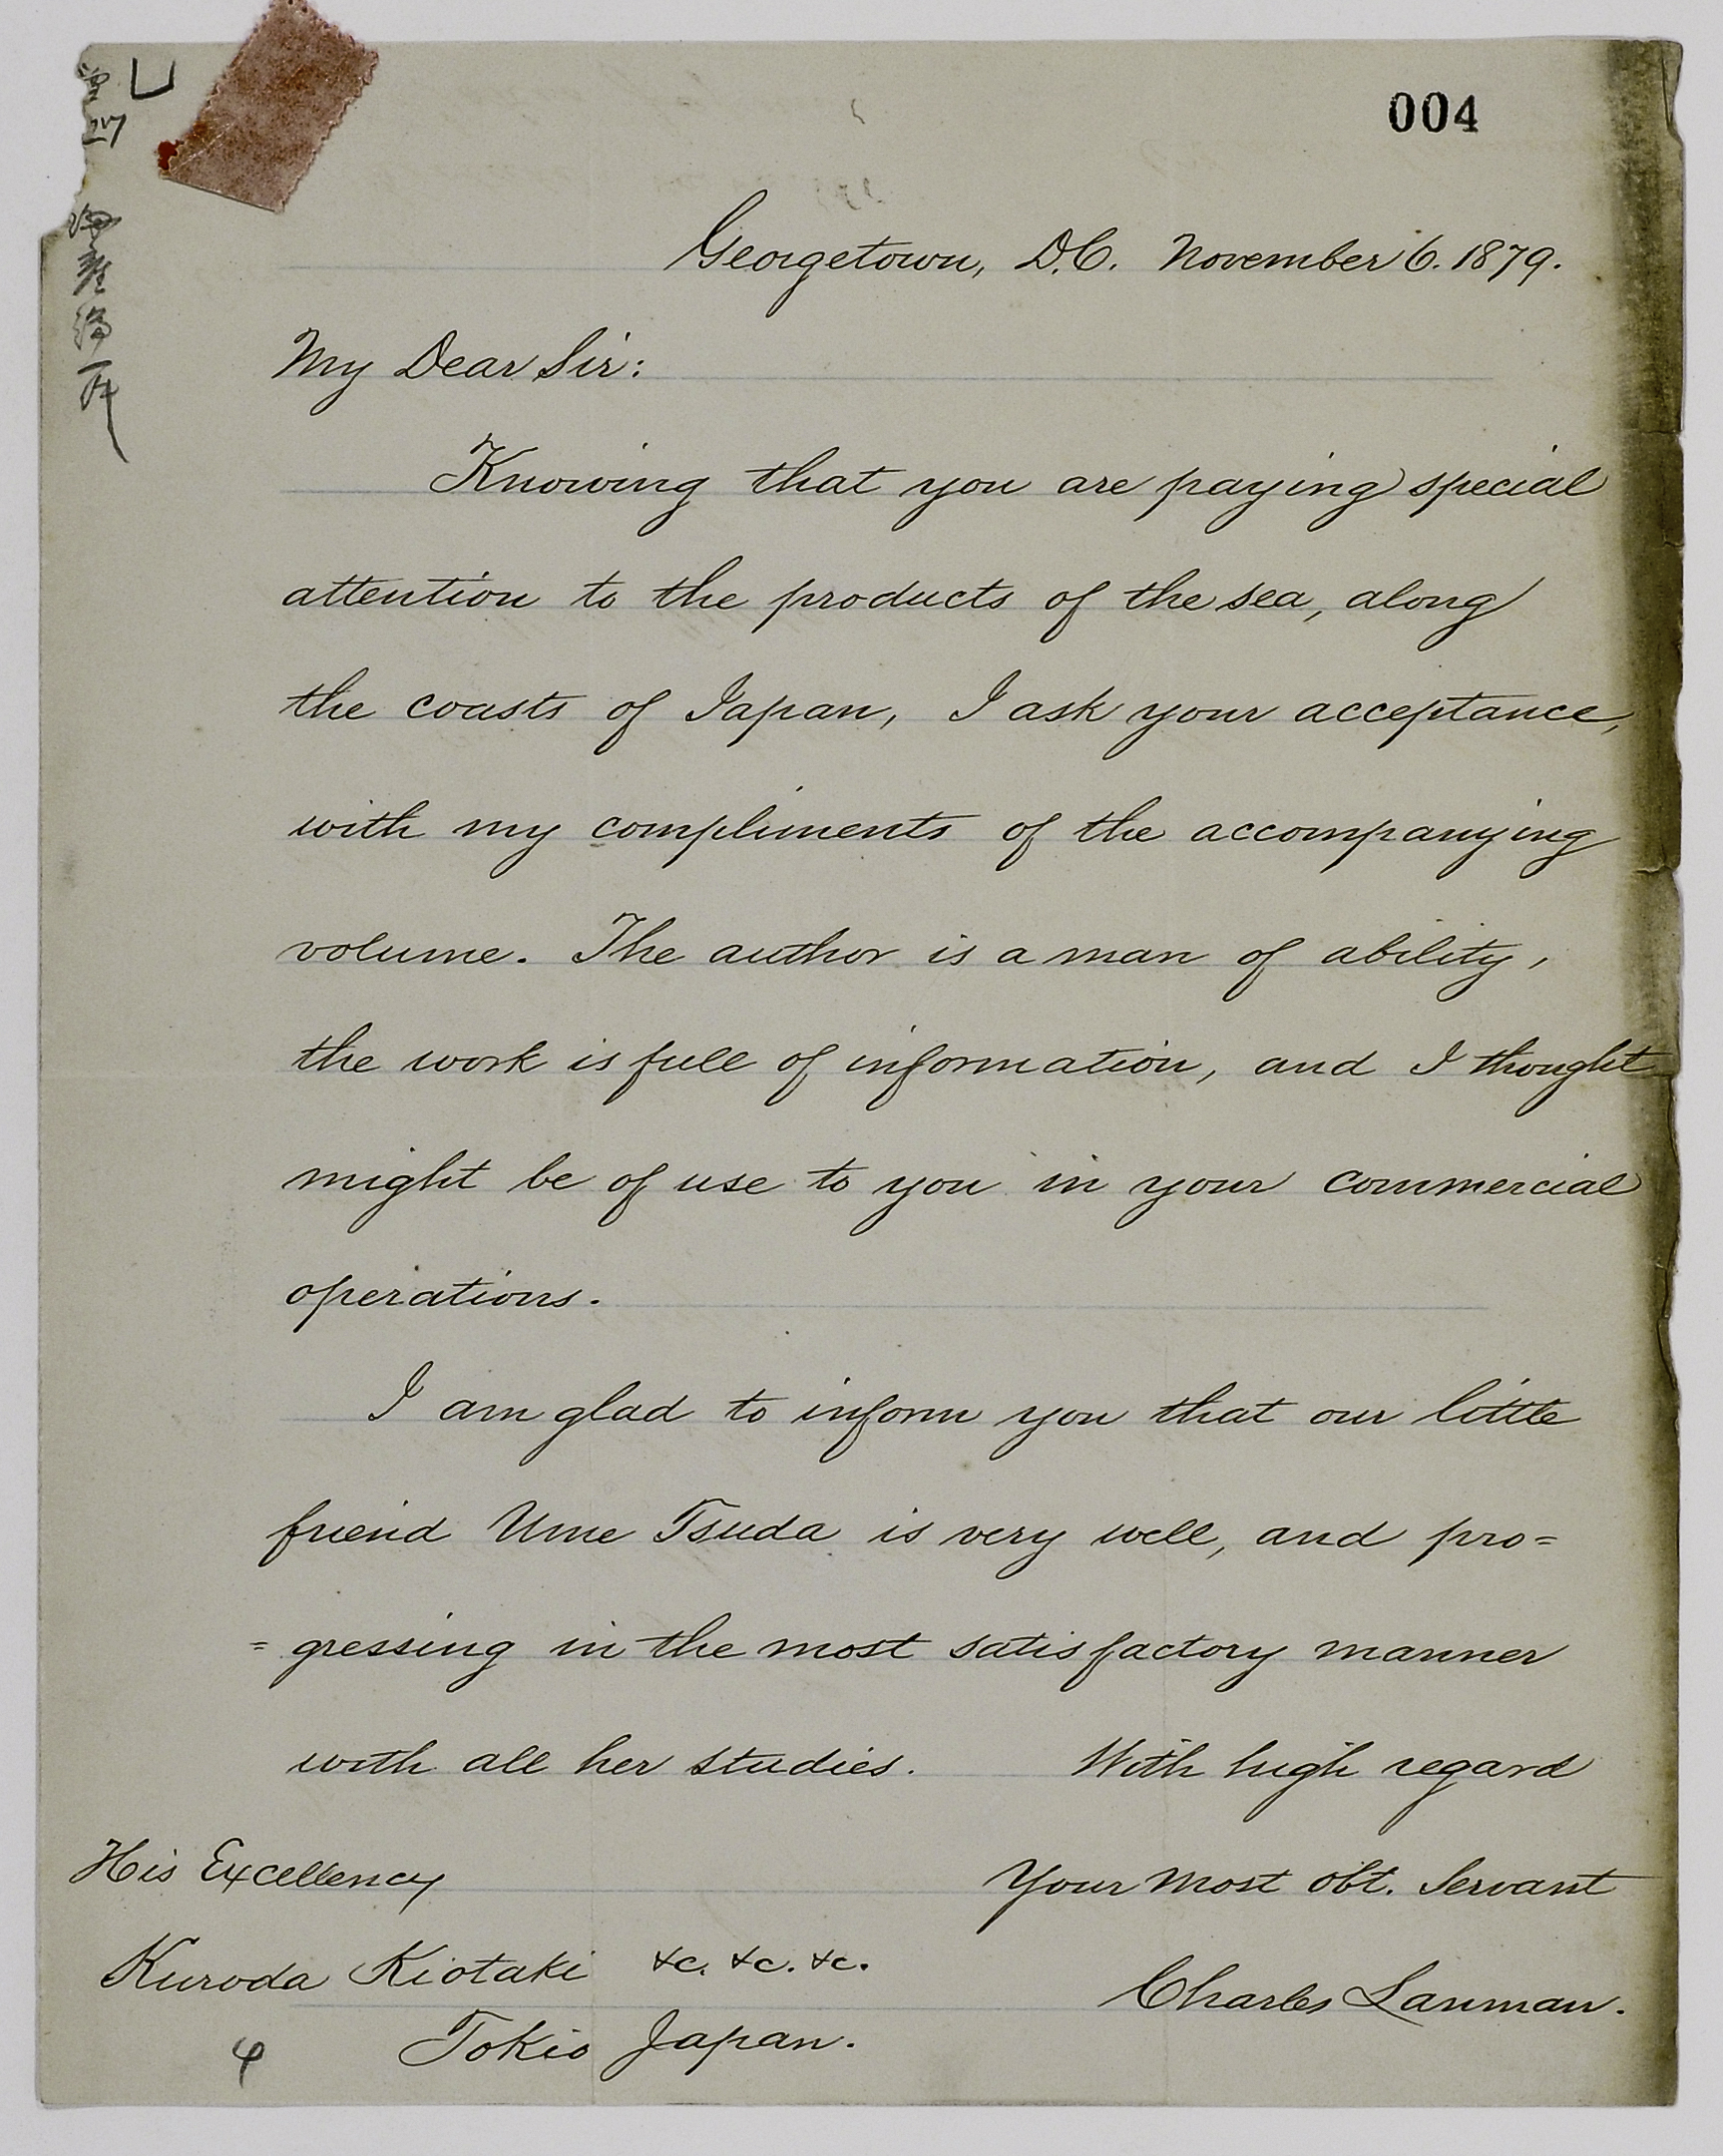 004
Georgetown, D.C. November 6. 1879.
My Dear Sir:
Knowing that you are paying special
attention to the products of the sea, along
the coasts of Japan, I ask your acceptance,
with my compliments of the accompanying
volume. The author is a man of ability,
the work is full of information, and I thought
might be of use to you in your commercial
operations.
I am glad to inform you that our little
friend Ume Tsuda is very well, and pro=
=gressing in the most satisfactory manner
with all her studies. With high regard
Your most obt. Servant
Charles Lanman.
His Excellency
Kuroda Kiotaki &c. &c. &c.
Tokio Japan.